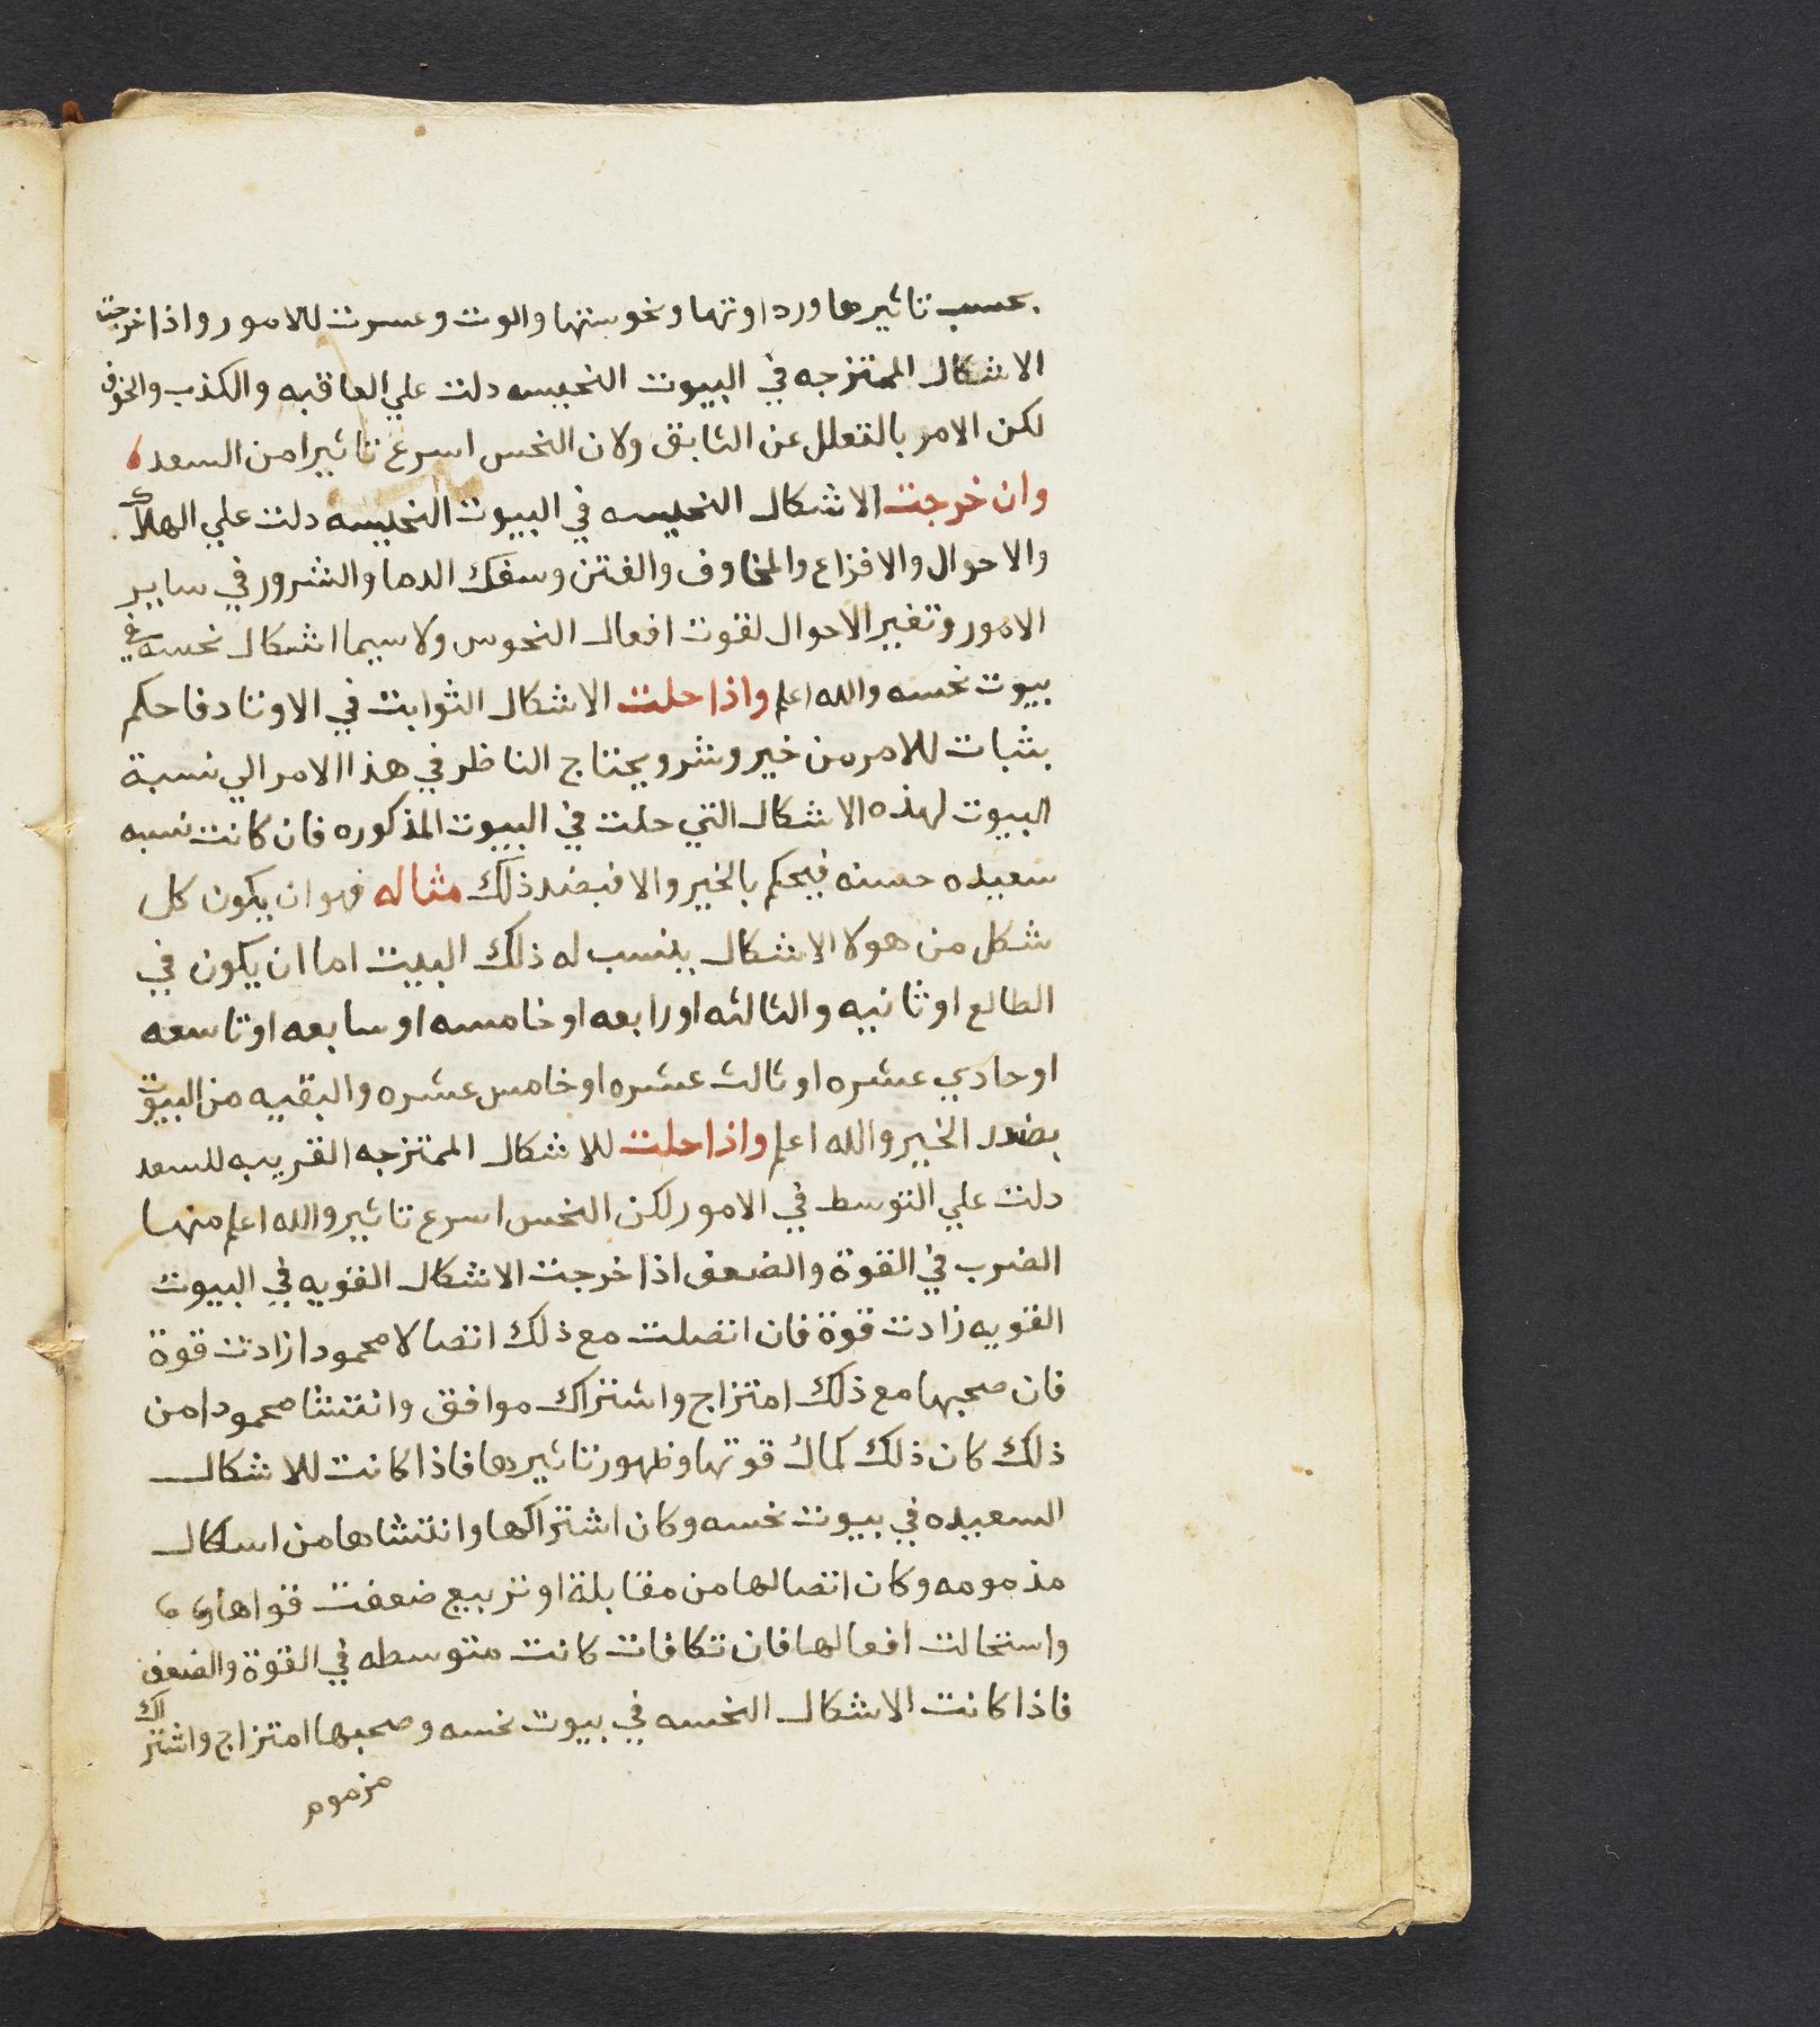 بحسب تاثيرها ورداوتها ونحوستها والوت وعسرت للامور واذا خرجت
الاشكال الممتزجه في البيوت النحيسه دلت علي العاقبه والكذب والخوف
لكن الامر بالتعلل عن الثابق ولان النحس اسرع تاثيرا من السعد
وان خرجت الاشكال النحيسه في البيوت النحيسه دلت علي الهلاك
والاحوال والافزاع والمخاوف والفتن وسفك الدما والشرور في ساير
الامور وتغير الاحوال لقوت افعال النحوس ولاسيما اشكال نحسه في
بيوت نحسه والله اعلم واذا حلت الاشكال الثوابت في الاوتاد فاحكم
بثبات للامر من خير وشر ويحتاج الناظر في هذا الامر الي نسبة
البيوت لهذه الاشكال التي حلت في البيوت المذكوره فان كانت نسبه
سعيده حسنه فيحكم بالخير والا فبضد ذلك مثاله فهو ان يكون كل
شكل من هولا الاشكال ينسب له ذلك البيت اما ان يكون في
الطالع او ثانيه والثالثه او رابعه او خامسه او سابعه او تاسعه
او حادي عشره او ثالث عشره او خامس عشره والبقيه من البيوت
بضدد الخير والله اعلم واذا حلت للاشكال الممتزجه القريبه للسعد
دلت علي التوسط في الامور لكن النحس اسرع تاثير والله اعلم منها
الضرب في القوة والضعف اذا خرجت الاشكال القويه في البيوت
القويه زادت قوة فان اتصلت مع ذلك اتصالا محمودا زادت قوة
فان صحبها مع ذلك امتزاج واشتراك موافق وانتشا محمودا من
ذلك كان ذلك كمال قوتها وظهور تاثيرها فاذا كانت للاشكال
السعيده في بيوت نحسه وكان اشتراكها وانتشاها من اسكال
مذمومه وكان اتصالها من مقابلة او تربيع ضعفت قواها
واستحالت افعالها فان تكافات كانت متوسطه في القوة والضعف
فاذا كانت الاشكال النحسه في بيوت نحسه وصحبها امتزاج واشتراك
مزموم